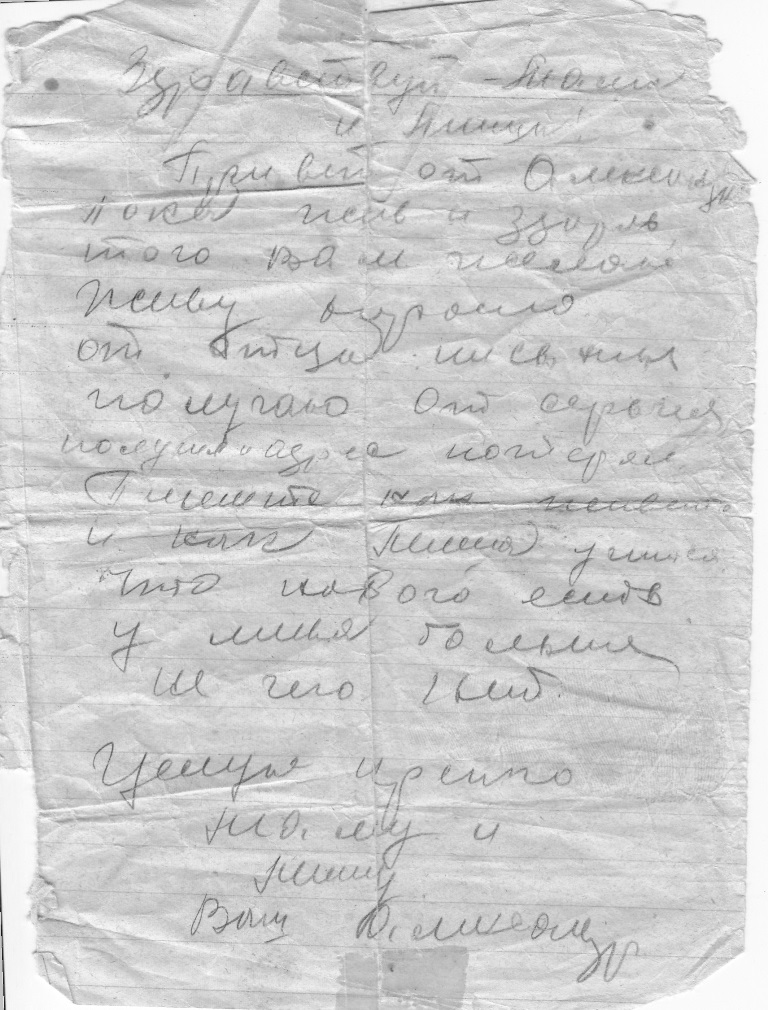 Здравствуй Мама
и Нина!
Привет от Александра
пока жив и здоров
того вам желаю
Живу хорошо
от отца письма
получаю от сергея
получил и адрес потерял
Пишите как живете
и как Нина учится
Что нового есть
у миня больше
не чего нет.
Целую крепко
маму и
нину
Ваш Александр